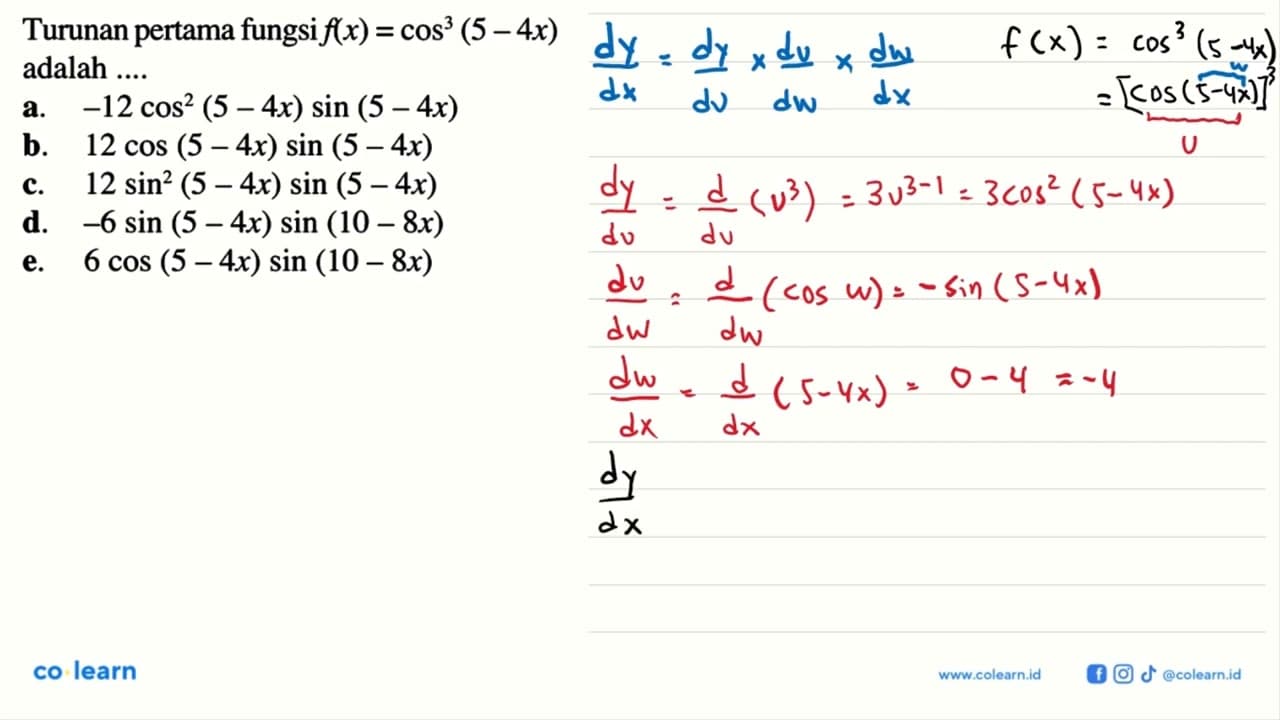 Turunan pertama fungsi f(x) = cos³ (5 – 4x)
adalah ....
a. –12 cos² (5 – 4x) sin (5 – 4x)
b. 12 cos (5 – 4x) sin (5 – 4x)
c. 12 sin² (5 – 4x) sin (5 – 4x)
d. –6 sin (5 – 4x) sin (10 – 8x)
e. 6 cos (5 – 4x) sin (10 – 8x)
dy/dx = dy/du × du/dw × dw/dx
f(x) = cos³ (5-4x)
w
= [cos(5-4x)]³
u
dy/du = d/du (u³) = 3u³⁻¹ = 3cos² (5-4x)
du/dw = d/dw (cos w) = -sin (5-4x)
dw/dx = d/dx (5-4x) = 0-4 = -4
dy/dx
co learn
www.colearn.id
@colearn.id